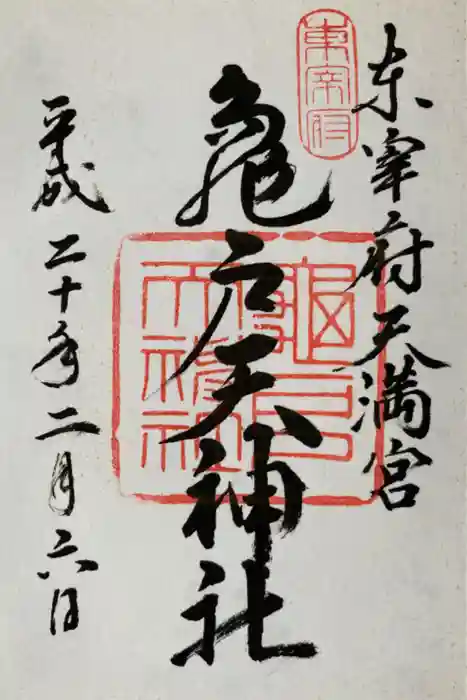 東宰府天満宮
東宰府
亀戸天神社
亀戸天神社
平成二十年二月六日